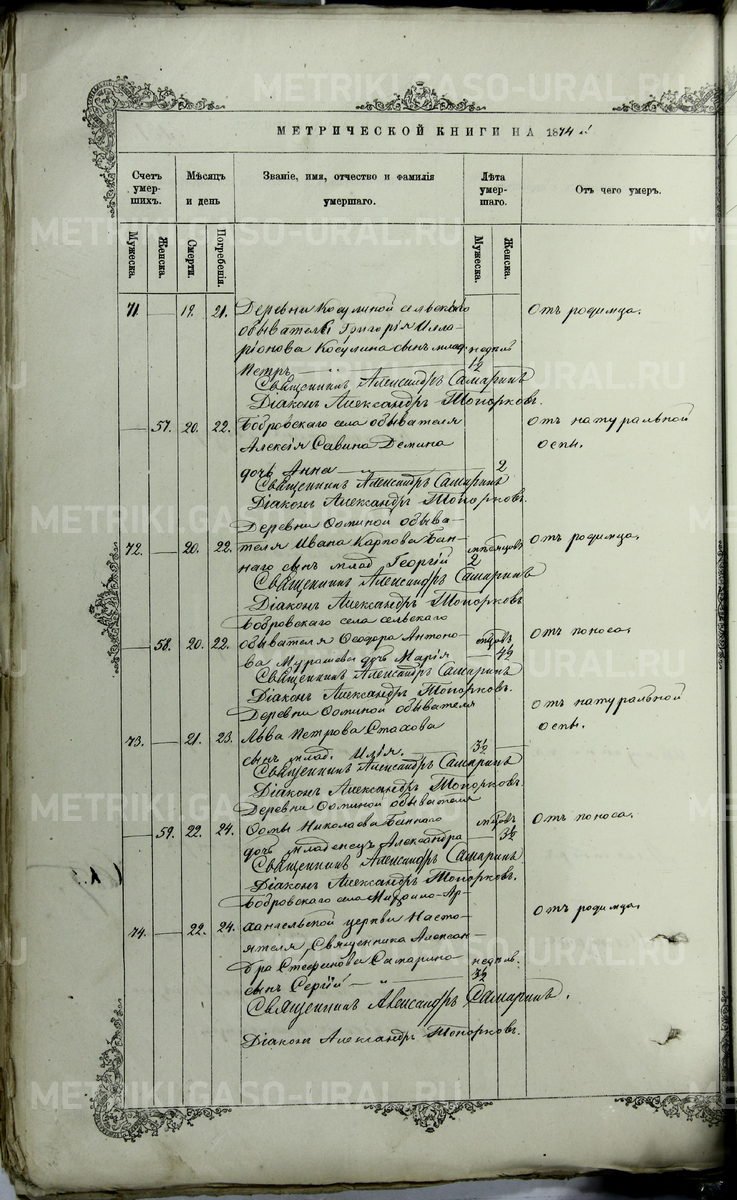 МЕТРИЧЕСКОЙ КНИГИ НА 1874 й
Счетъ умерших.
Мѣсяцъ и день
Званіе, имя, отчество и фамилія умершаго.
Лѣта умершаго.
Отъ чего умеръ.
Мужеска. Женска. Смерти. Погребенія. Мужеска. Женска.
71 — 19. 21. Деревни Косулиной сельскаго Отъ родимца.
обывателя Григорія Илла-
ріонова Косулина сынъ млад. недѣль
Петръ 1½
Священникъ Александръ Самаринъ
Діаконъ Александръ Топорковъ.
— 57. 20. 22. Бобровскаго села обывателя Отъ натуральной
Алексія Савина Демина оспы.
дочь Анна — 2
Священникъ Александръ Самаринъ
Діаконъ Александръ Топорковъ.
Деревни Ѳоминой обыва-
72. — 20. 22. теля Ивана Карпова Бан- мѣсяцовъ Отъ родимца.
наго сынъ млад. Георгій 2
Священникъ Александръ Самаринъ
Діаконъ Александръ Топорковъ
Бобровскаго села сельскаго
— 58. 20. 22. обывателя Ѳеодора Антоно- Отъ поноса.
ва Мурашева дочь Марія — 4½
Священникъ Александръ Самаринъ
Діаконъ Александръ Топорковъ.
Деревни Ѳоминой обывателя Отъ натуральной
73. — 21. 23. Льва Петрова Стахова оспы.
сынъ млад. Илія. — 3½
Священникъ Александръ Самаринъ
Діаконъ Александръ Топорковъ.
Деревни Ѳоминой обывателя
— 59. 22. 24. Ѳомы Николаева Баннаго Отъ поноса.
дочь младенецъ Александра — 3½
Священникъ Александръ Самаринъ
Діаконъ Александръ Топорковъ.
Бобровскаго села Михаило-Ар- Отъ родимца.
74. — 22. 24. хангельской церкви Насто-
ятеля, Священника Алексан-
дра Стефанова Самарина недѣль.
сынъ Сергій — 3½
Священникъ Александръ Самаринъ.
Діаконъ Александръ Топорковъ.
METRIKI.GASO-URAL.RU